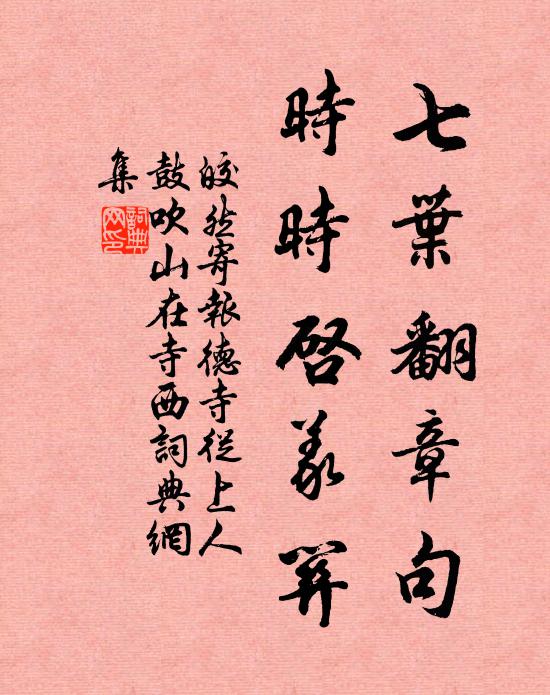 七葉翻章句
時時啓義
皎然寄報德寺從上人
鼓吹山在寺西詞典網
集
詞典
网印